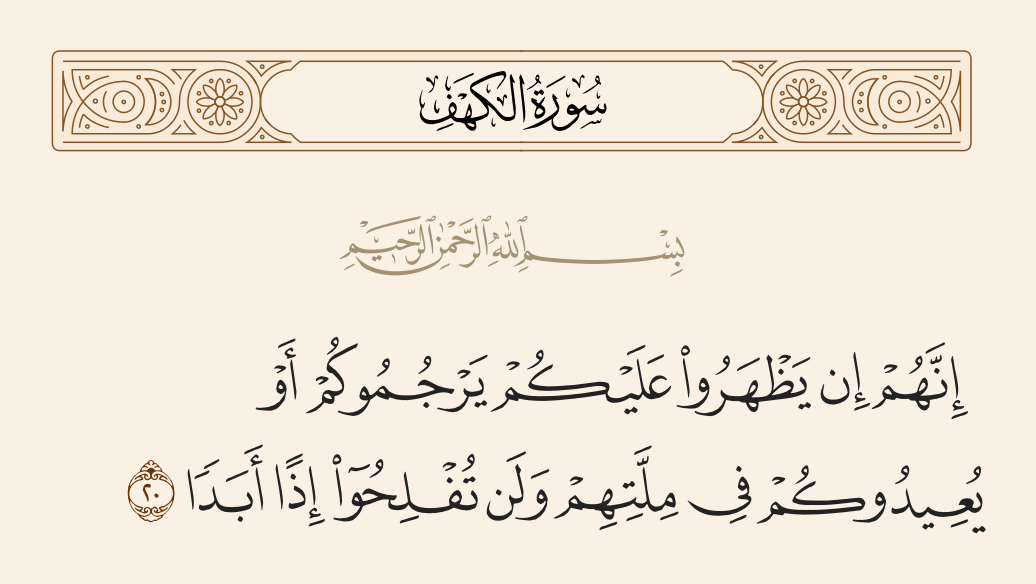 سُورَةُ الكَهۡفِ
بِسۡمِ ٱللَّهِ ٱلرَّحۡمَٰنِ ٱلرَّحِيمِ
إِنَّهُمۡ إِن يَظۡهَرُواْ عَلَيۡكُمۡ يَرۡجُمُوكُمۡ أَوۡ
يُعِيدُوكُمۡ فِي مِلَّتِهِمۡ وَلَن تُفۡلِحُوٓاْ إِذًا أَبَدٗا ٢٠